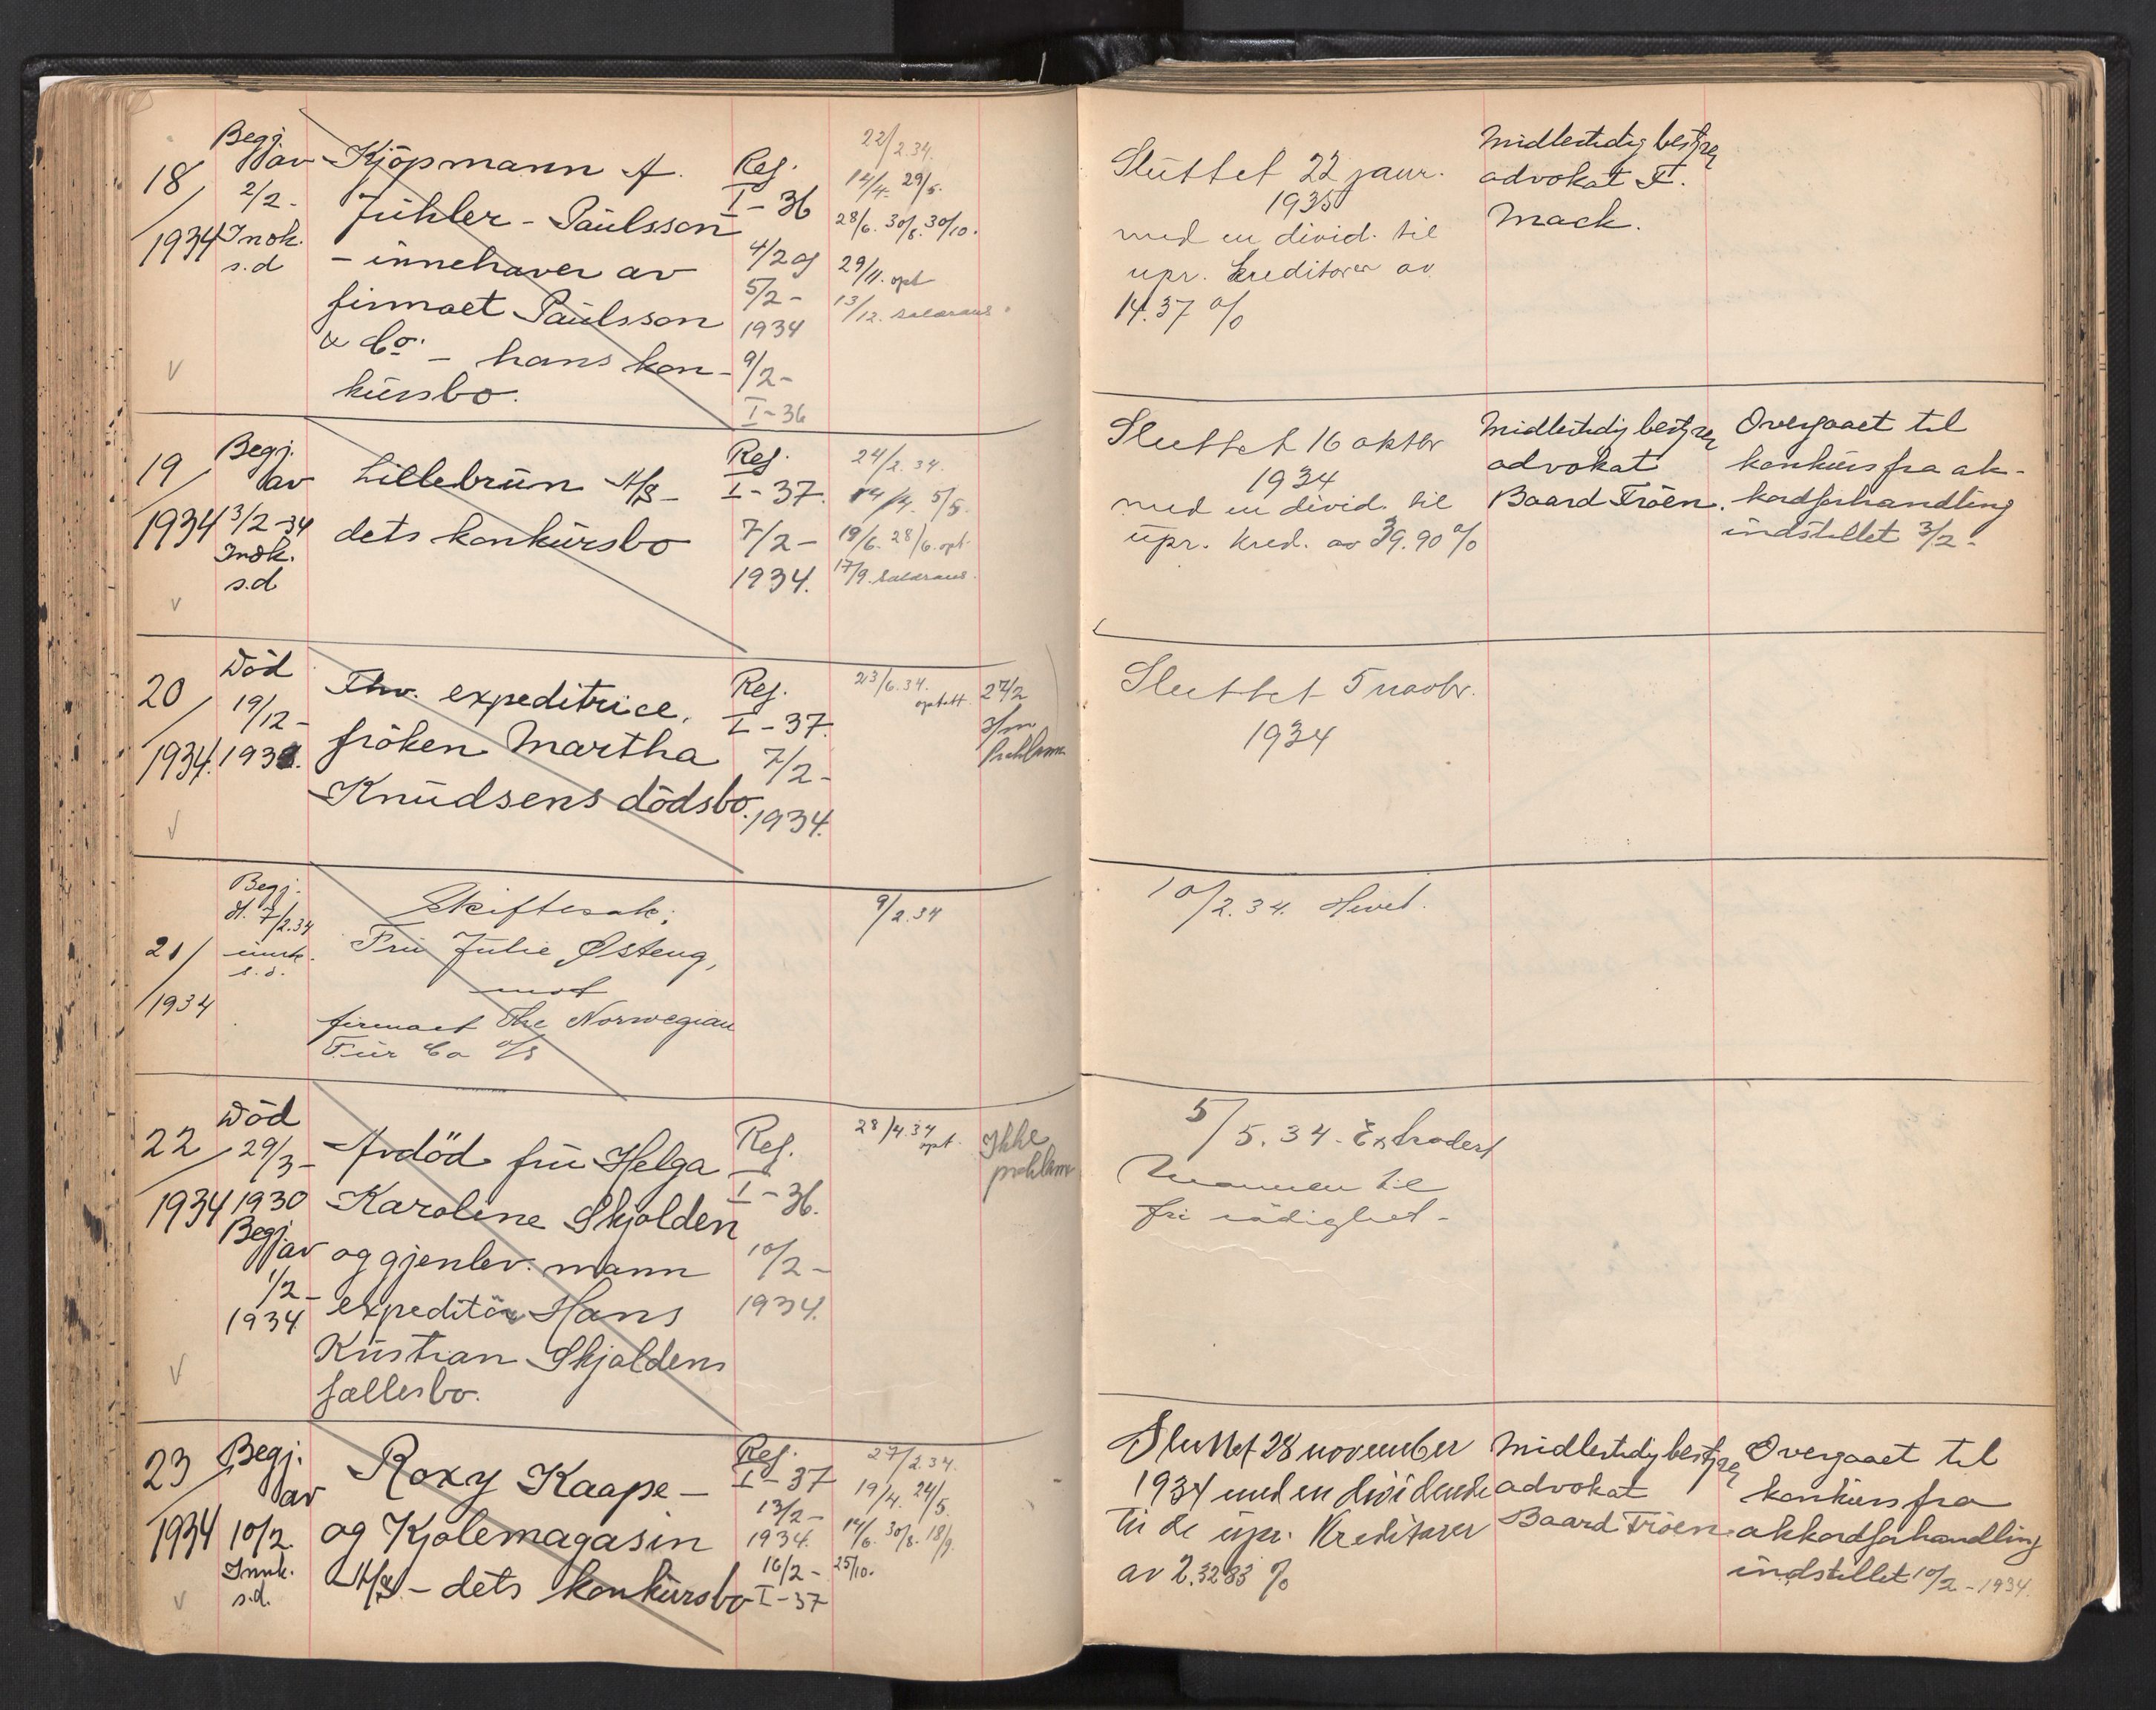 18/1934
Begj. av
2/2 -
Innk.
s.d
Kjöpmann A.
Jühler - Paülsson
- innehaver av
firmaet Paülsson
& Co. - hans kon-
kürsbo.
Reg.
I - 36
4/2 og
5/2 -
1934
9/2 -
I - 36
22/2.34.
12/4. 29/5.
28/6. 30/8. 30/10.
29/11. opt
13/12.
Slüttet 22 janr.
1935
med en divid. til
upr. kreditorer av
14.37 %
Midlertidig bestyrer
advokat F.
Mack.
19/1934
Begj.
av
3/2 - 34
Innk.
s.d
Lillebrün A/S -
dets konkürsbo
Reg.
I - 37.
7/2 -
1934.
24/2.34.
14/4. 5/5.
19/6. 28/6. opt.
17/9.
Sluttet 16 oktbr
1934
med en divid. til
üpr. kred. av 39.90 %
Midlertidig bestyrer
advokat
Baard Tröen.
Overgaaet til
konkürs fra ak-
kordforhandling
indstillet 3/2 -
20/1934.
Död
19/12 -
193
Fhv. expeditrice,
fröken Martha
Knüdsens dödsbo.
Reg.
I - 37.
7/2 -
1934.
23/6.34.
optatt
27/2
Proklama
Sluttet 5 novbr.
1934
21/1934
Begj.
7/2.34
innk.
s.d.
Skiftesak:
Frü Julie Østeng,
mot
firmaet The Norwegian
Für Co a/s
9/2.34
10/2.34. Hevet.
22/1934
Död
29/3 -
1930
Begj. av
1/2 -
1934
Avdöd frü Helga
Karoline Skjolden
og gjenlev. mann
expeditör Hans
Kristian Skjoldens
fællesbo.
Reg.
I - 36.
10/2 -
1934.
28/4.34
opt.
Ikke
proklama
5/5.34. Extradert
Mannen til
fri rådighet.
23/1934
Begj.
av
10/2.
Innk.
s.d.
Roxy Kaape -
og Kjolemagasin
A/S - dets konkürsbo
Reg.
I - 37
13/2 -
1934.
16/2 -
I - 37
27/2.34.
19/4. 24/5.
14/6. 30/8. 18/9.
25/10.
Sluttet 28 november
1934 med en dividende
til de üpr. Kreditorer
av 2.3283 %
Midlertidig bestyrer
advokat
Baard Tröen.
Overgaaet til
konkürs fra
akkordforhandling
indstillet 10/2 - 1934.